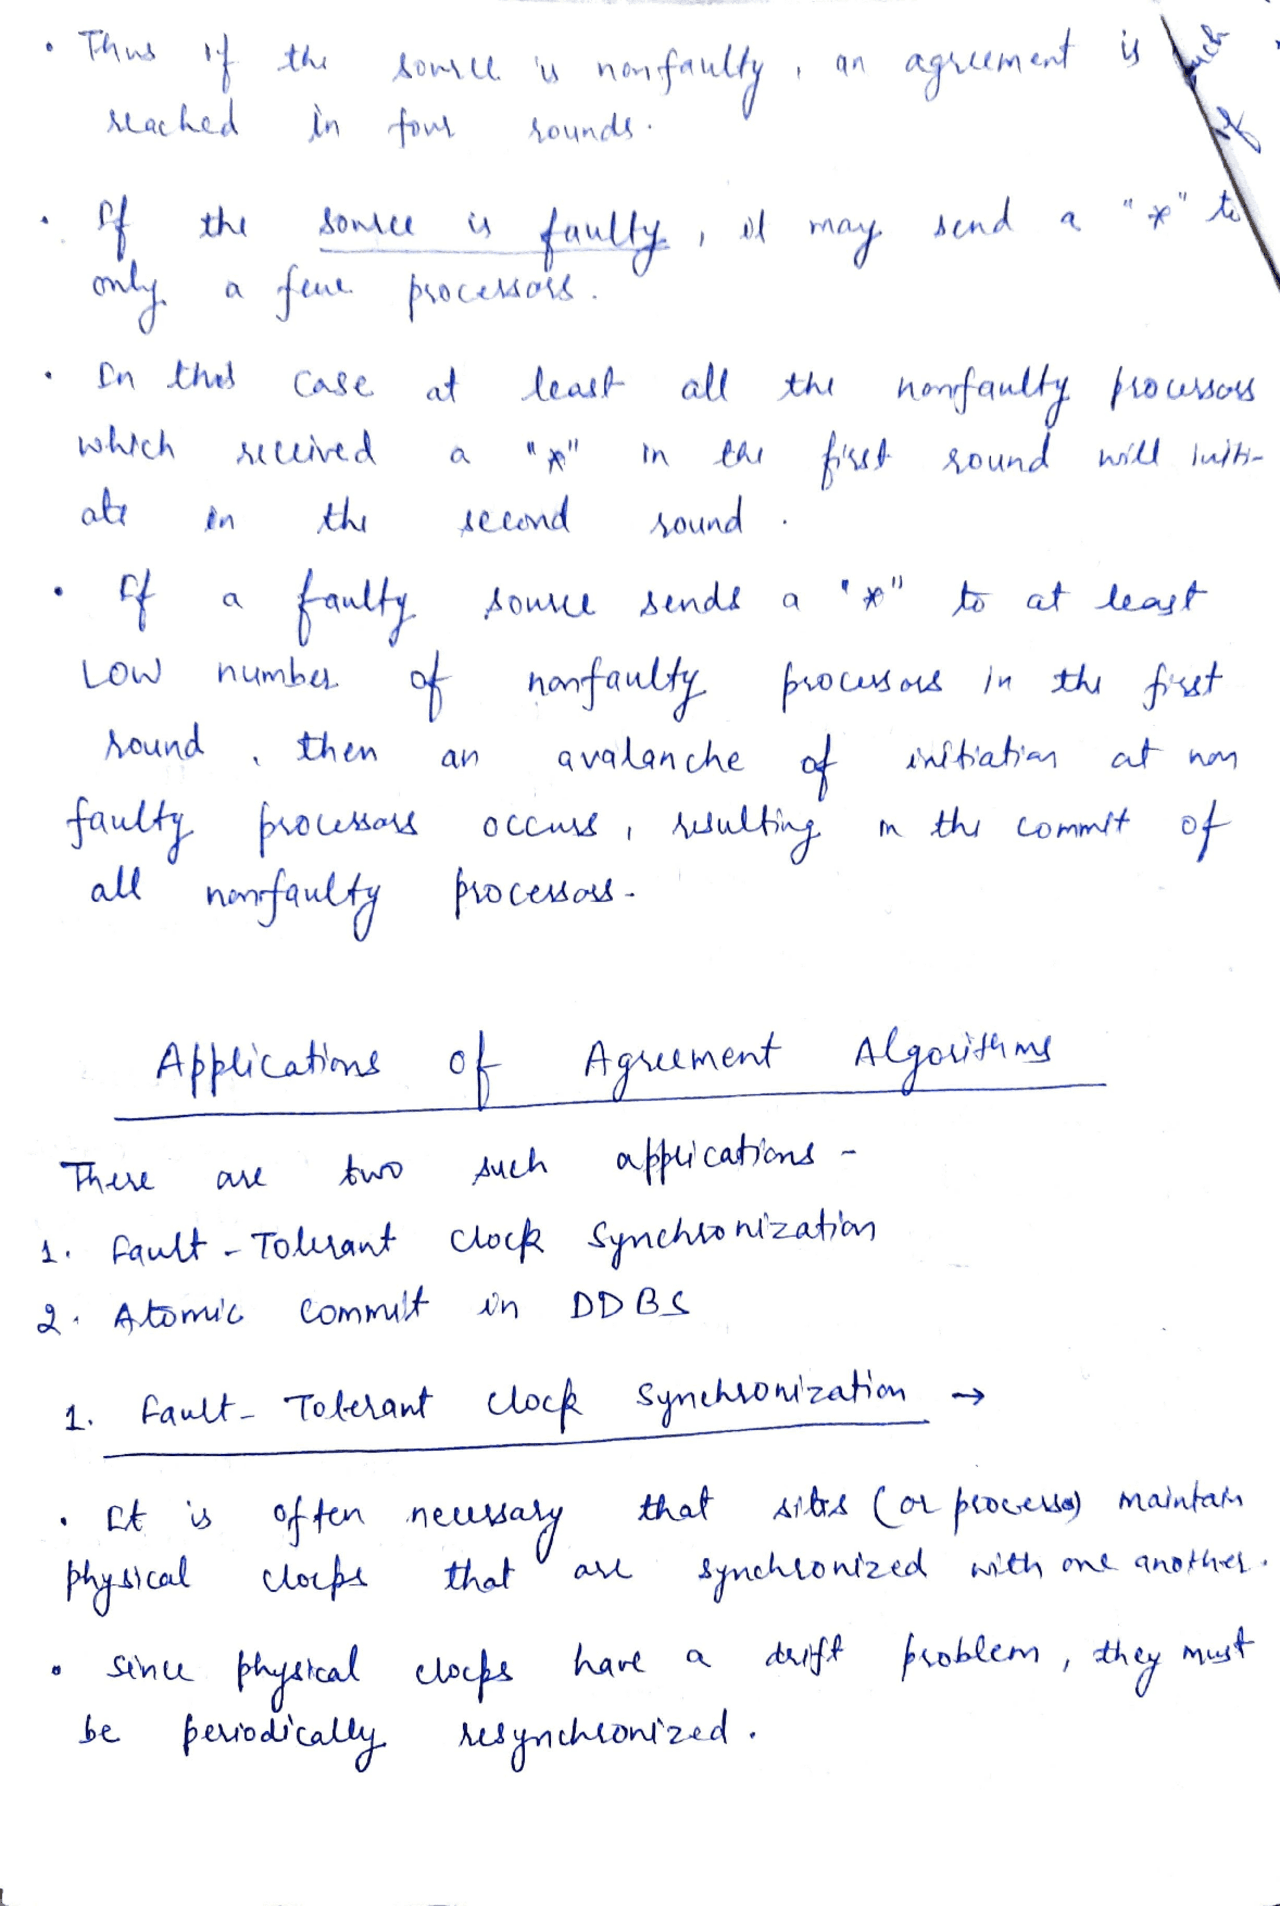 • Thus if the source is nonfaulty, an agreement is
reached in four rounds.
• If the source is faulty, it may send a "*" to
only a few processors.
• In this case at least all the nonfaulty processors
which received a "*" in the first round will initi-
ate in the second round.
• If a faulty source sends a "*" to at least
LOW number of nonfaulty processors in the first
round, then an avalanche of initiation at non
faulty processors occurs, resulting in the commit of
all nonfaulty processors.
Applications of Agreement Algorithms
There are two such applications -
1. Fault-Tolerant Clock Synchronization
2. Atomic Commit in DDBS
1. Fault-Tolerant Clock Synchronization →
• It is often necessary that sites (or processes) maintain
physical clocks that are synchronized with one another.
• Since physical clocks have a drift problem, they must
be periodically resynchronized.